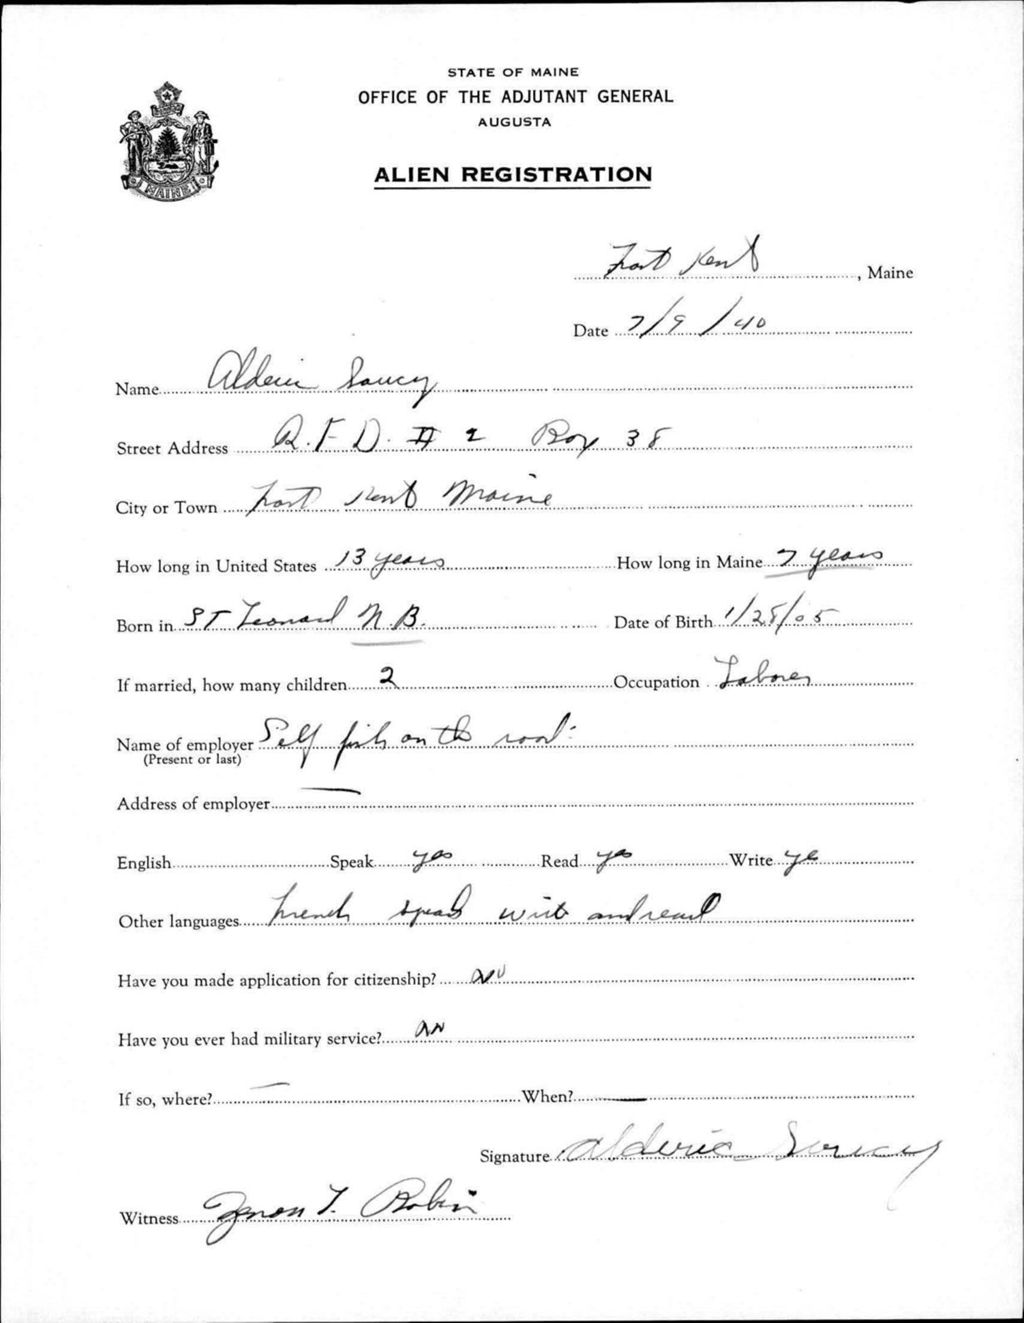 STATE OF MAINE
OFFICE OF THE ADJUTANT GENERAL
AUGUSTA
MAINE
ALIEN REGISTRATION
Fort Kent, Maine
Date 7/9/40
Name Alderic Saucy
Street Address R.F.D. # 2 Box 38
City or Town Fort Kent Maine
How long in United States 13 years How long in Maine 7 years
Born in ST Leonard N.B. Date of Birth 1/28/05
If married, how many children 2 Occupation Laborer
Name of employer Self on the road
(Present or last)
Address of employer —
English Speak yes Read yes Write ye
Other languages French speak write and read
Have you made application for citizenship? No
Have you ever had military service? No
If so, where? — When? —
Signature Alderic Soucy
Witness T. Robin